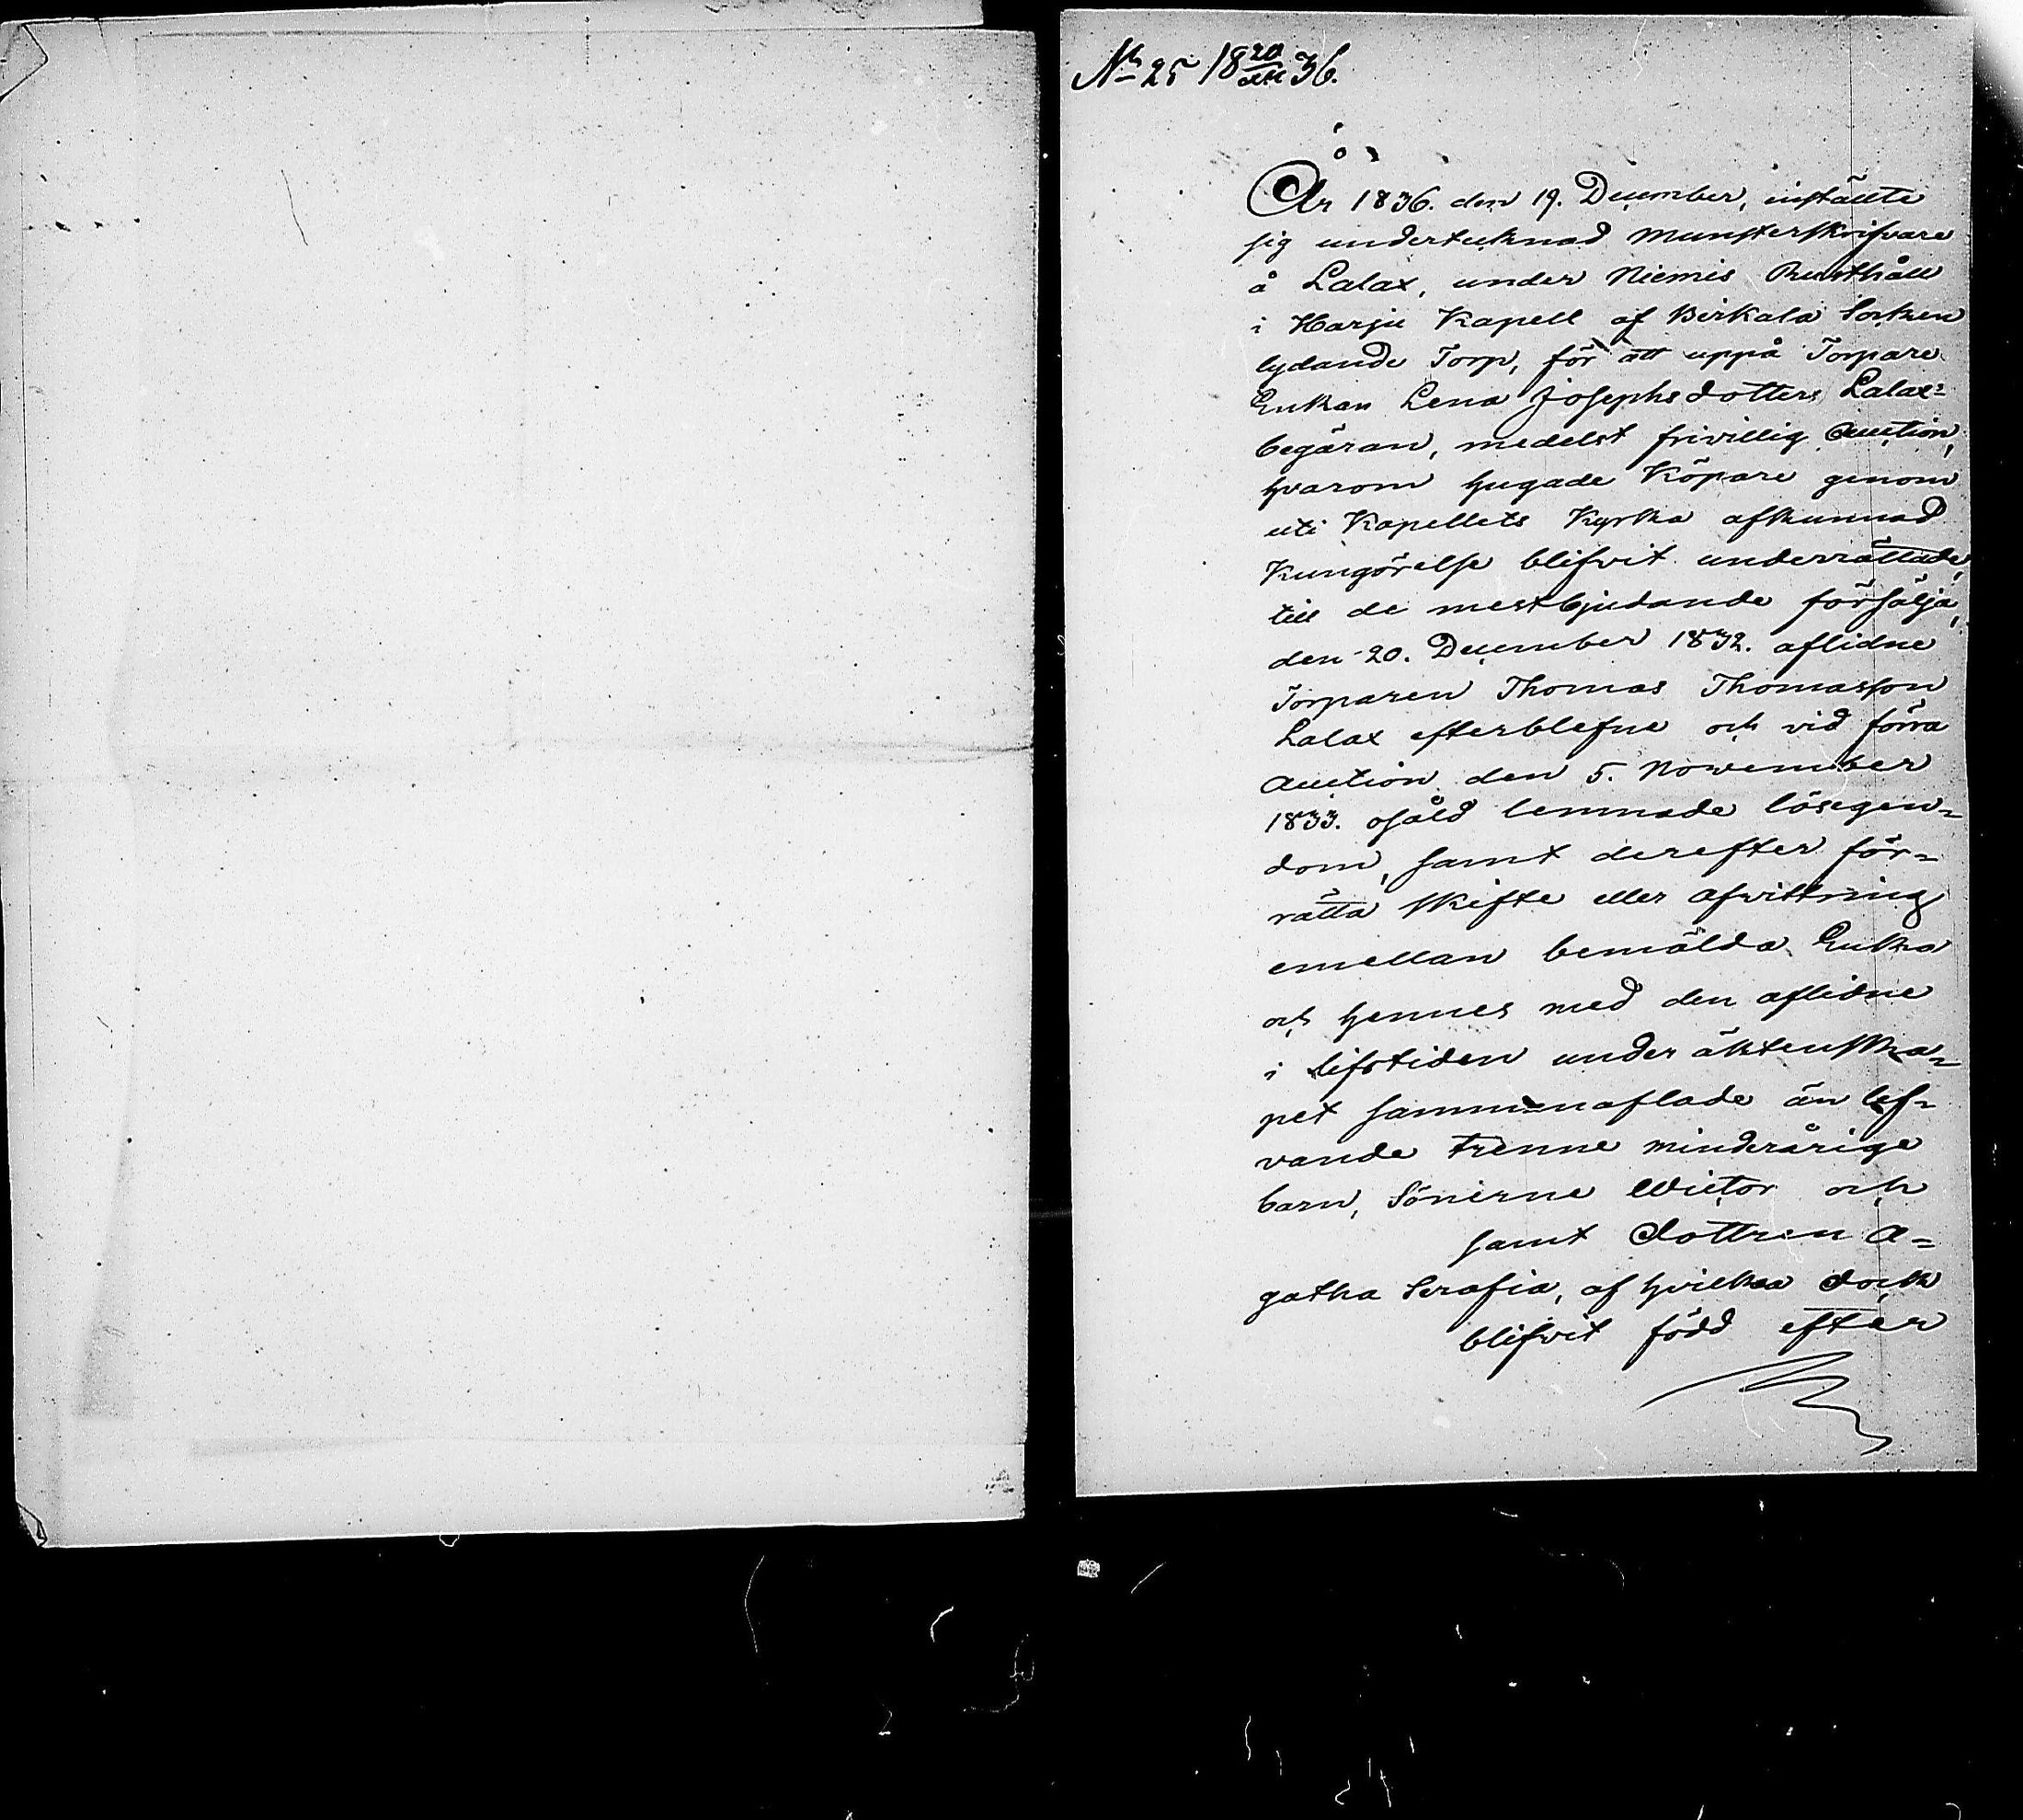 No 25 18 20/XII 36.
År 1836. den 19. December, instälte
sig undertecknad Munsterskrifvare
å Lalax, under Niemis Rusthåll
i Harju Kapell af Birkala Socken
lydande Torp, för att uppå Torpare
Enkan Lena Josephsdotters Lalax-
begäran, medelst frivillig Auction,
hvarom hugade Köpare genom
uti Kapellets Kyrka afkunnad
Kungörelse blifvit underrättade,
till de mestbjudande försälja,
den 20. December 1832. aflidne
Torparen Thomas Thomasson
Lalax efterblefne och vid förra
Auction den 5. November
1833. osåld lemnade lösegen-
dom, samt derefter för-
rätta skifte eller afwittring
emellan bemälda Enka
och hennes med den aflidne
i lifstiden under äktenska-
pet sammanaflade än lef-
vande trenne minderårige
barn, Sönerne Wictor och
samt dottren A-
gatha Serafia, af hvilka dock
blifvit född efter